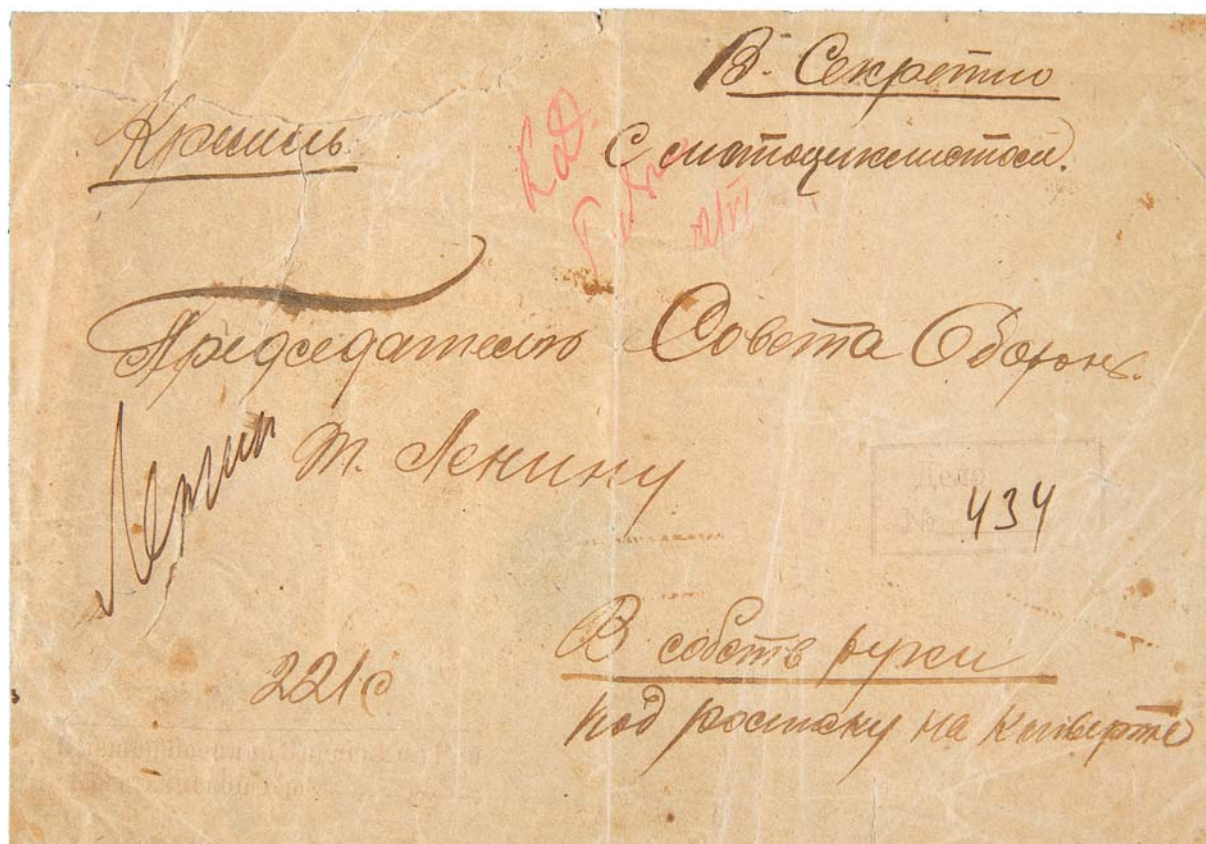 В. Секретно
Кремль
С мотоциклистом.
Председателю Совета Обороны.
т. Ленину
Ленин
Дело
№ 434
221с
В собств руки
под расписку на конверте